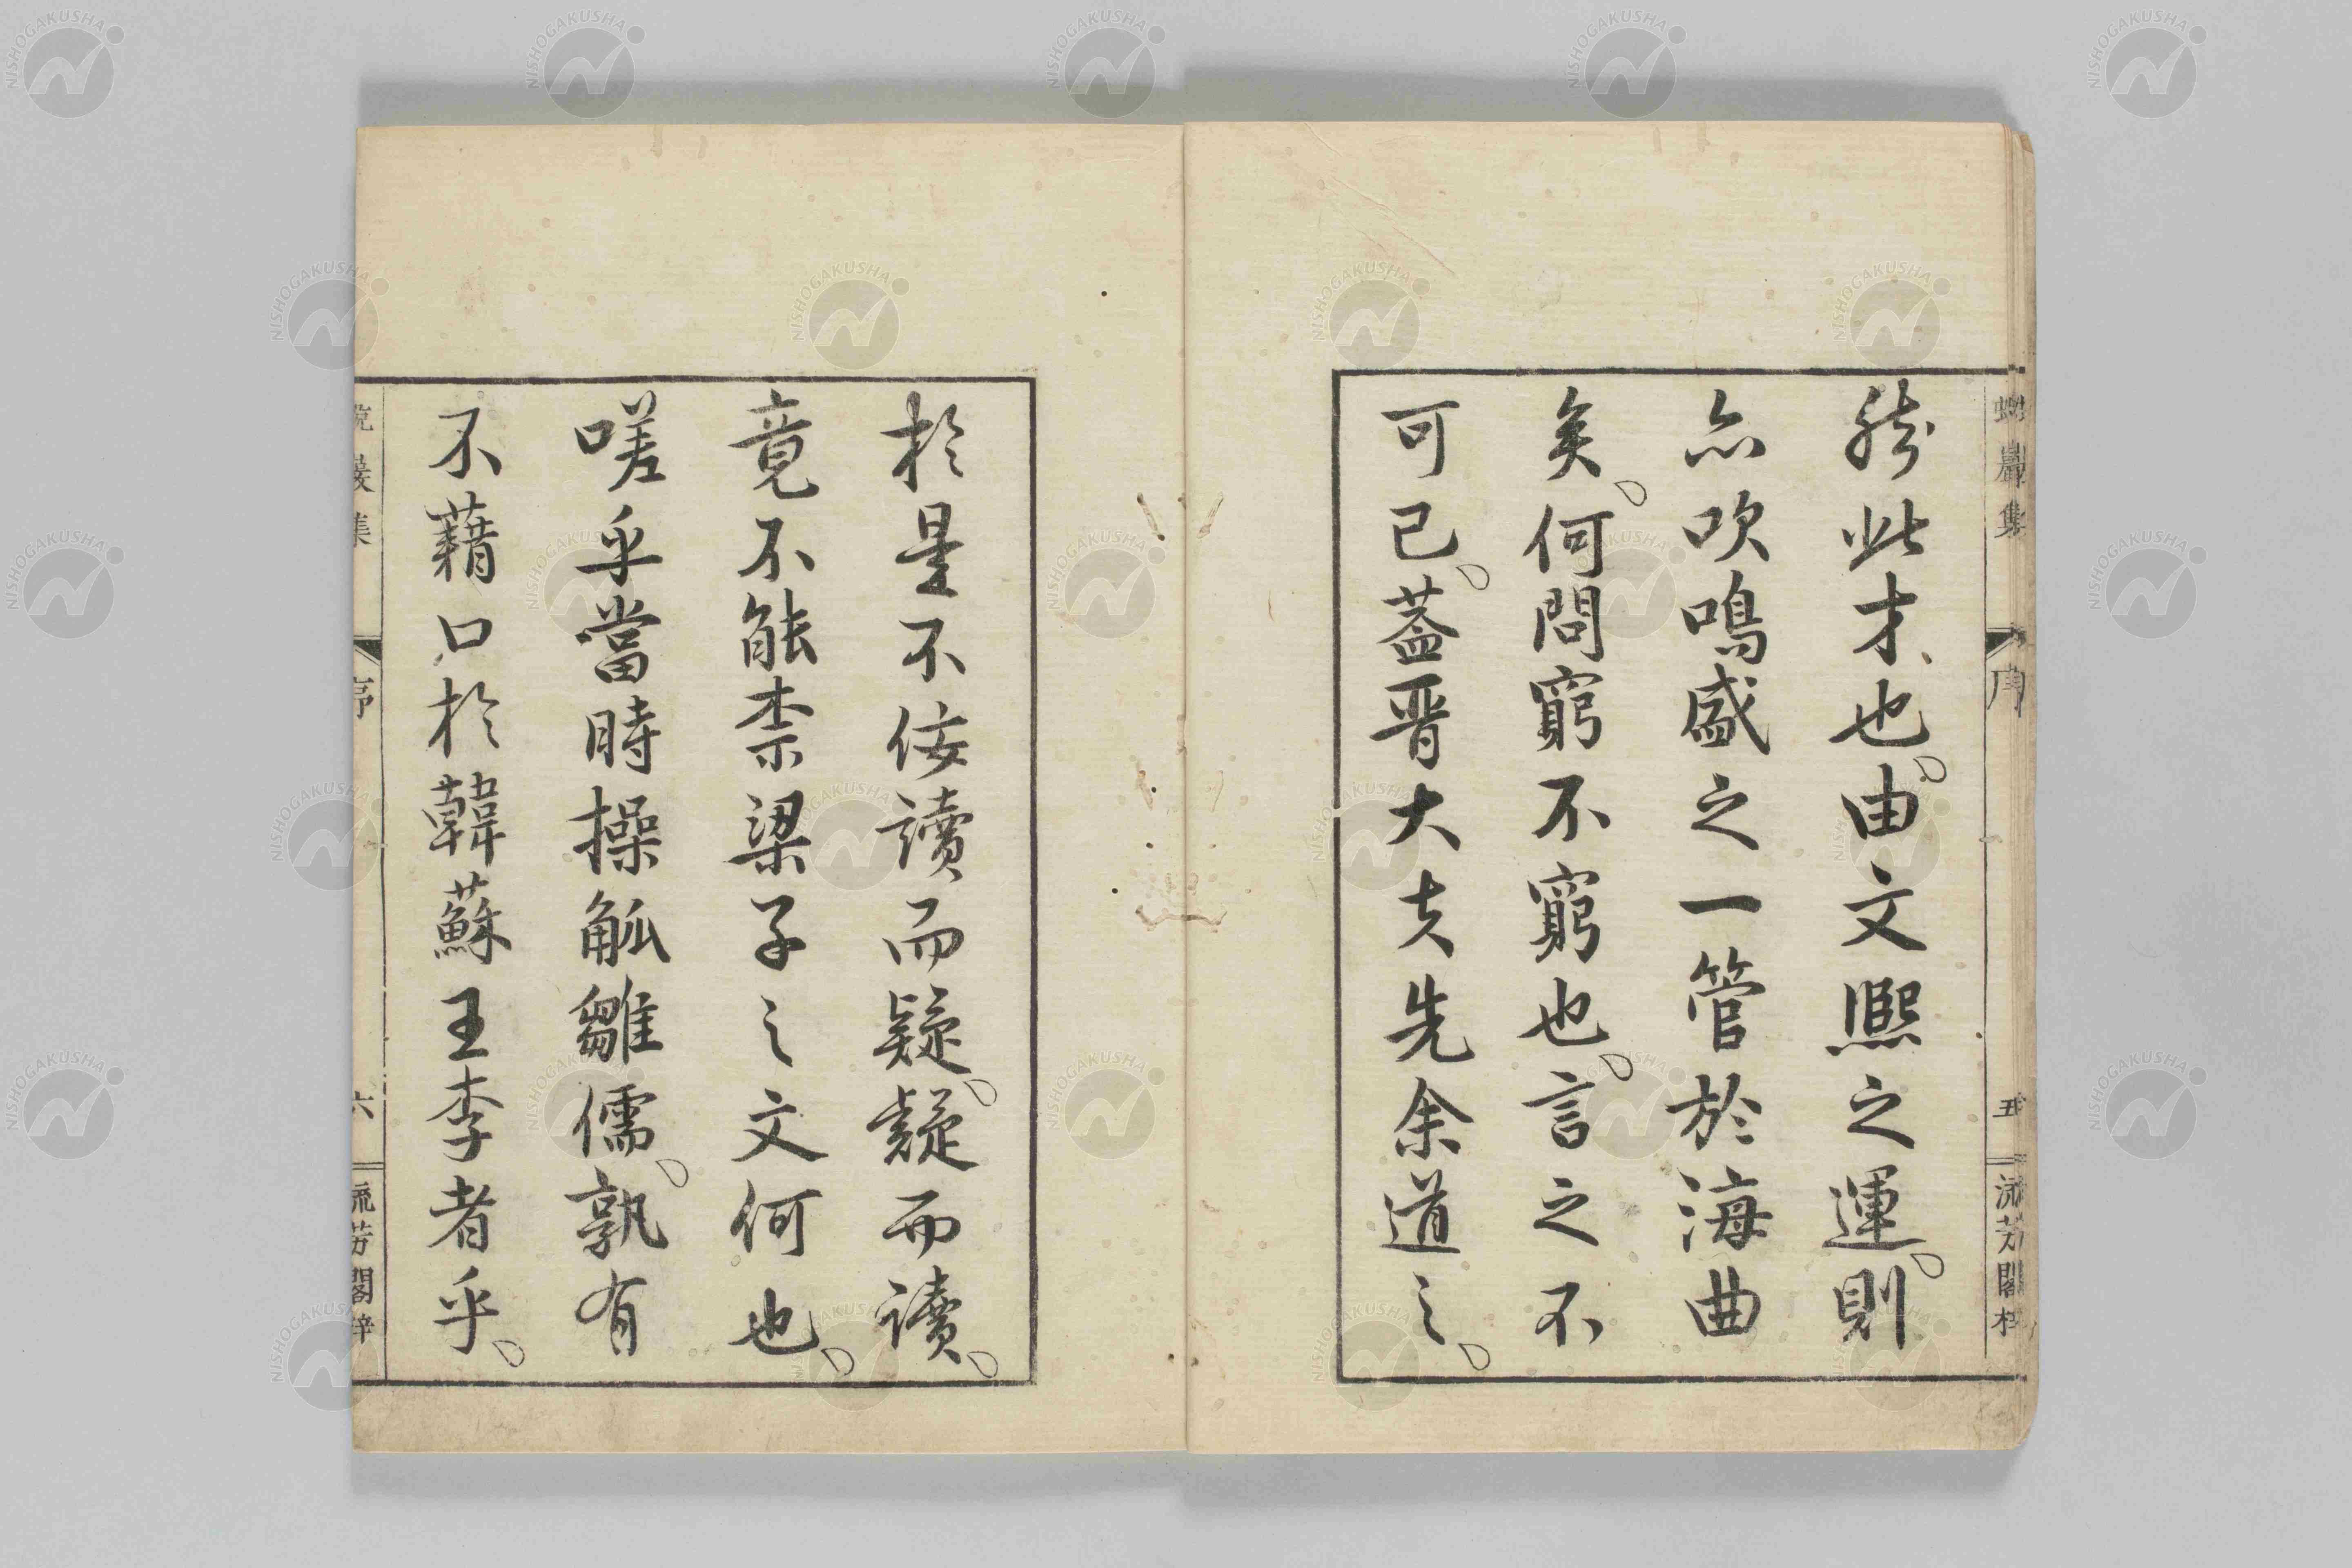 蛻巖集
序
五
流芳閣梓
然此才也。由文熙之運。則
亦吹鳴盛之一管於海曲
矣。何問窮不窮也。言之不
可已。蓋晋大夫先余道之。
於是不佞讀而疑。疑而讀。
竟不能禁梁子之文何也。
嗟乎當時操觚雛儒。孰有
不藉口於韓蘇王李者乎。
蛻巖集
序
六
流芳閣梓
NISHOGAKUSHA